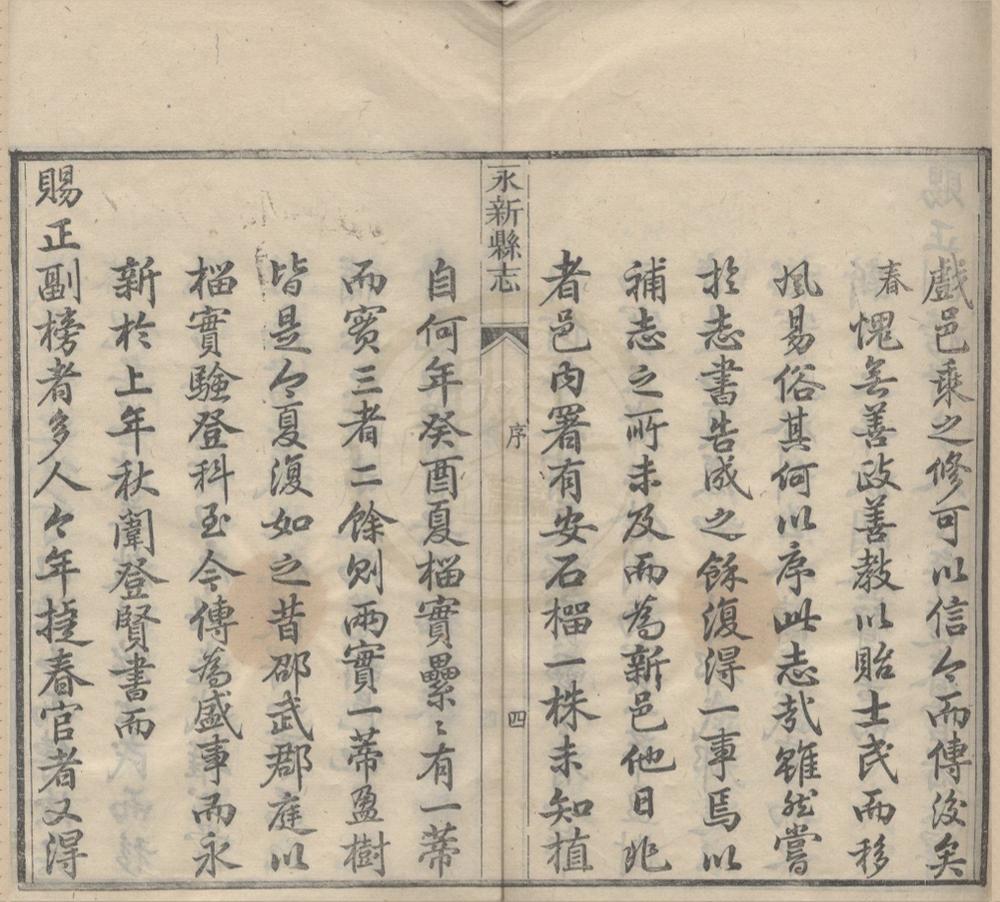 戲邑乘之修可以信今而傳後矣
春愧無善政善教以貽士民而移
風易俗其何以序此志哉雖然嘗
於志書告成之餘復得一事焉以
補志之所未及而為新邑他日兆
者邑內署有安石榴一株未知植
永新縣志
序
四
自何年癸酉夏榴實纍〻有一蒂
而實三者二餘則兩實一蒂盈樹
皆是今夏復如之昔邵武郡庭以
榴實驗登科至今傳為盛事而永
新於上年秋闈登賢書而
賜正副榜者多人今年捷春官者又得